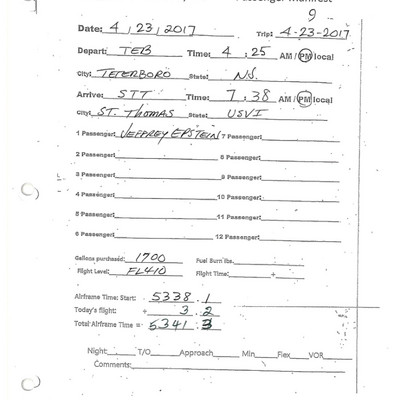 Passenger Manifest
9
Date: 4 / 23 / 2017 Trip: 4-23-2017
Depart: TEB Time: 4 : 25 AM / PM local
City: TETERBORO State: NJ.
Arrive: STT Time: 7 : 38 AM / PM local
City: ST. THOMAS State: USVI
1 Passenger: JEFFREY EPSTEIN 7 Passenger:
2 Passenger: 8 Passenger:
3 Passenger: 9 Passenger:
4 Passenger: 10 Passenger:
5 Passenger: 11 Passenger:
6 Passenger: 12 Passenger:
Gallons purchased: 1700 Fuel Burn lbs.
Flight Level: FL410 Flight Time: +
Airframe Time: Start: 5338.1
Today's flight: + 3.2
Total Airframe Time = 5341.3
Night: T/O Approach Min Flex VOR
Comments: